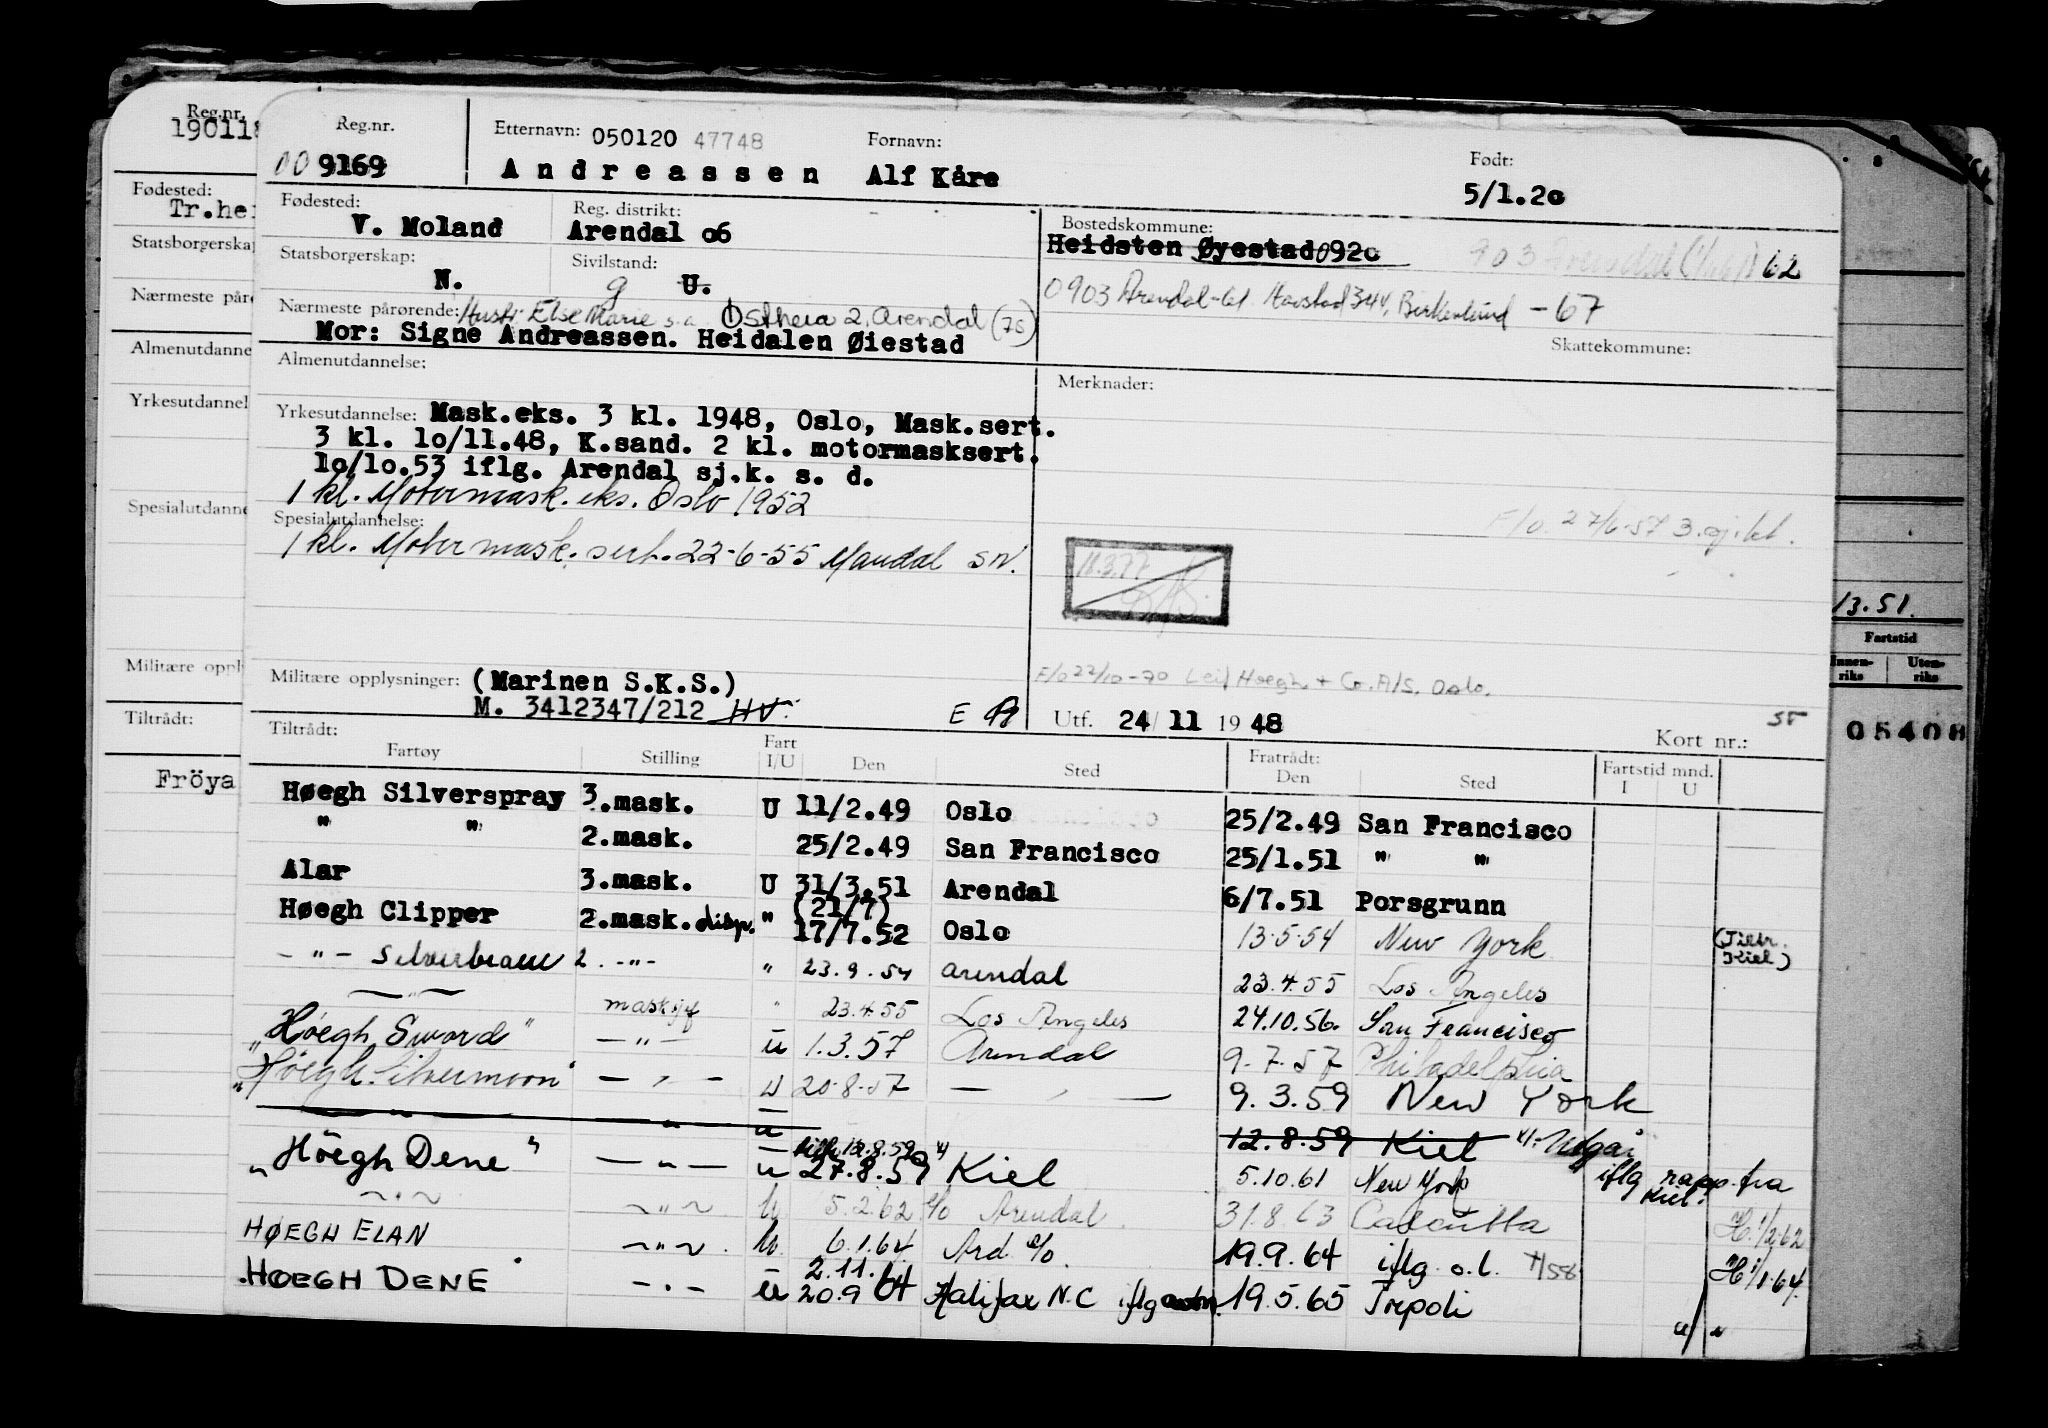 Reg.nr. Reg.nr. Etternavn: 050120 47748 Fornavn: Født:
190118 00 9169 Andreassen Alf Kåre 5/1.20
Fødested: Fødested: Reg. distrikt: Bostedskommune:
Tr.hei V. Moland Arendal 06 Heidsten Øyestad 0920 903 Arendal 62
Statsborgerskap Statsborgerskap: Sivilstand: 0903 Arendal Havstad 344, Birkenlund - 67
N. g U.
Nærmeste pårø Nærmeste pårørende: Hustr. Else Marie s.a. Østheia 2, Arendal (75)
Mor: Signe Andreassen. Heidalen Øiestad Skattekommune:
Almenutdanne Almenutdannelse: Merknader:
Yrkesutdannel Yrkesutdannelse: Mask.eks. 3 kl. 1948, Oslo, Mask.sert.
3 kl. 10/11.48, K.sand. 2 kl. motormasksert.
10/10.53 iflg. Arendal sj.k. s. d.
1 kl. Motormask. eks. Oslo 1952
Spesialutdanne Spesialutdannelse: F/o. 27/6-57 3.
1 kl. Motormask. sert. 22-6-55 Mandal SN.
18.3.77
13.51.
Fartstid
Innenriks Utenriks
Militære oppl Militære opplysninger: (Marinen S.K.S.) F/o 22/10-70 Leif Høegh + Co. A/S. Oslo.
M. 3412347/212 HV. E Utf. 24/11 1948 55
05408
Tiltrådt: Tiltrådt: Fratrådt: Kort nr.:
Fartøy Stilling Fart I/U Den Sted Den Sted Fartstid mnd. I U
Fröya Høegh Silverspray 3.mask. U 11/2.49 Oslo 25/2.49 San Francisco
" " 2.mask. 25/2.49 San Francisco 25/1.51 " "
Alar 3.mask. U 31/3.51 Arendal 6/7.51 Porsgrunn
Høegh Clipper 2.mask.disp. " (21/7) 17/7.52 Oslo 13.5.54 New York (Tiltr. Kiel)
- " - Silverbeam 2. -"- " 23.9.54 Arendal 23.4.55 Los Angeles
- " - maskсjef " 23.4.55 Los Angeles 24.10.56. San Francisco
"Høegh Sword" - " - u 1.3.57 Arendal 9.7.57 Philadelphia
"Höegh Silvermoon" - " - u 20.8.57 - " - 9.3.59 New York
- " - " u 12.8.59 Kiel Utgår
"Höegh Dene" - " - u 27.8.59 Kiel 5.10.61 New York iflg rapp. fra Kiel.
- " - - " - U 5.2.62 Arendal 31.8.63 Calcutta H. 1/2.62
HØEGH ELAN - " - U. 6.1.64 Ard. 19.9.64 iflg. o.l. H 1/1.64.
HØEGH DENE - " - u 2.11.64 20.9.64 Halifax N.C iflg 19.5.65 Tripoli